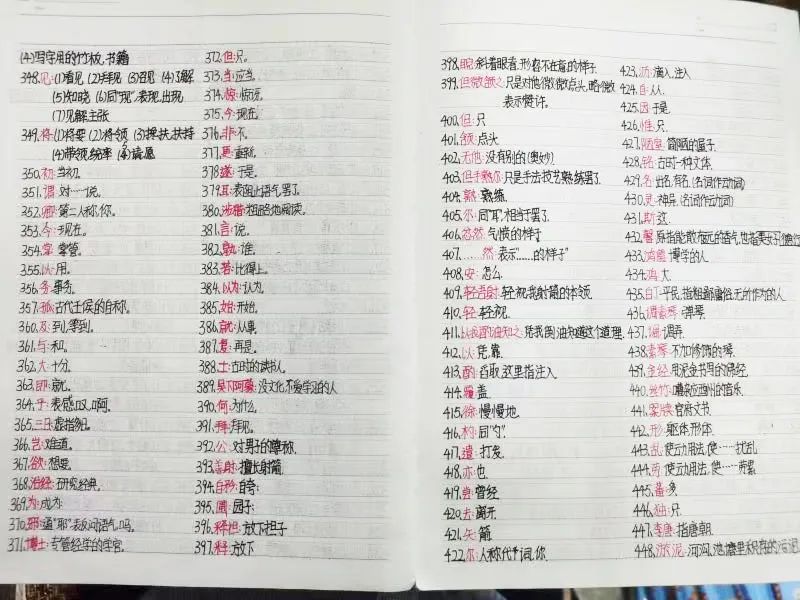 (4)写字用的竹板,书籍
348.见:(1)看见 (2)拜见 (3)召见 (4)了解
(5)知晓 (6)同"现",表现,出现
(7)见解,主张
349.将:(1)将要 (2)将领 (3)搀扶,扶持
(4)带领,统率 请,愿
350.初:当初。
351.谓:对……说。
352.卿:第二人称,你。
353.今:现在。
354.掌:掌管。
355.以:用。
356.务:事务。
357.孤:古代王侯的自称。
360.及:到,等到。
361.与:和。
362.大:十分。
363.即:就。
364.乎:表感叹,啊。
365.三日:虚指,多日。
366.岂:难道。
367.欲:想要。
368.治经:研究经典。
369.为:成为
370.邪:通"耶"表反问语气,吗。
371.博士:专管经学的学官。
372.但:只。
373.当:应当。
374.惊:惊讶。
375.今:现在。
376.非:不。
377.更:重新。
378.遂:于是。
379.耳:表限止语气,罢了。
380.涉猎:粗略地阅读。
381.言:说。
382.孰:谁。
383.若:比得上。
384.以为:认为。
385.始:开始。
386.就:从事。
387.复:再,是。
388.士:古时的读书人。
389.吴下阿蒙:没文化不爱学习的人
390.何:为什么。
391.拜:拜见。
392.公:对男子的尊称
393.善射:擅长射箭。
394.自矜:自夸。
395.圃:园子。
396.释担:放下担子
397.释:放下
398.睨:斜着眼看,形容不在意的样子。
399.但微颔之:只是对他微微点头,略微
表示赞许。
400.但:只
401.颔:点头
402.无他:没有别的(奥妙)
403.但手熟尔:只是手法技艺熟练罢了。
404.熟:熟练。
405.尔:同"耳",相当于罢了。
406.忿然:气愤的样子
407.……然:表示"……的样子"
408.安:怎么
409.轻吾射:轻视我射箭的本领。
410.轻:轻视。
411.以我酌油知之:凭我倒油知道这个道理。
412.以:凭,靠。
413.酌:舀取,这里指注入
414.覆:盖
415.徐:慢慢地。
416.杓:同"勺"。
417.遣:打发。
418.亦:也
419.尝:曾经
420.去:离开
421.矢:箭
422.尔:人称代词,你。
423.沥:滴入,注入
424.自:从。
425.因:于是。
426.惟:只
427.陋室:简陋的屋子。
428.铭:古时一种文体。
429.名:出名,有名。(名词作动词)
430.灵:神异。(名词作动词)
431.斯:这。
433.鸿儒:博学的人
434.鸿:大
435.白丁:平民,指粗鄙庸俗,无所作为的人
436.调素琴:弹琴。
437.调:调弄。
438.素琴:不加修饰的琴。
439.金经:用泥金书写的佛经。
441.案牍:官府文书。
442.形:躯体,形体。
443.乱:使动用法,使……扰乱
444.劳:使动用法,使……劳累
446.独:只
447.李唐:指唐朝。